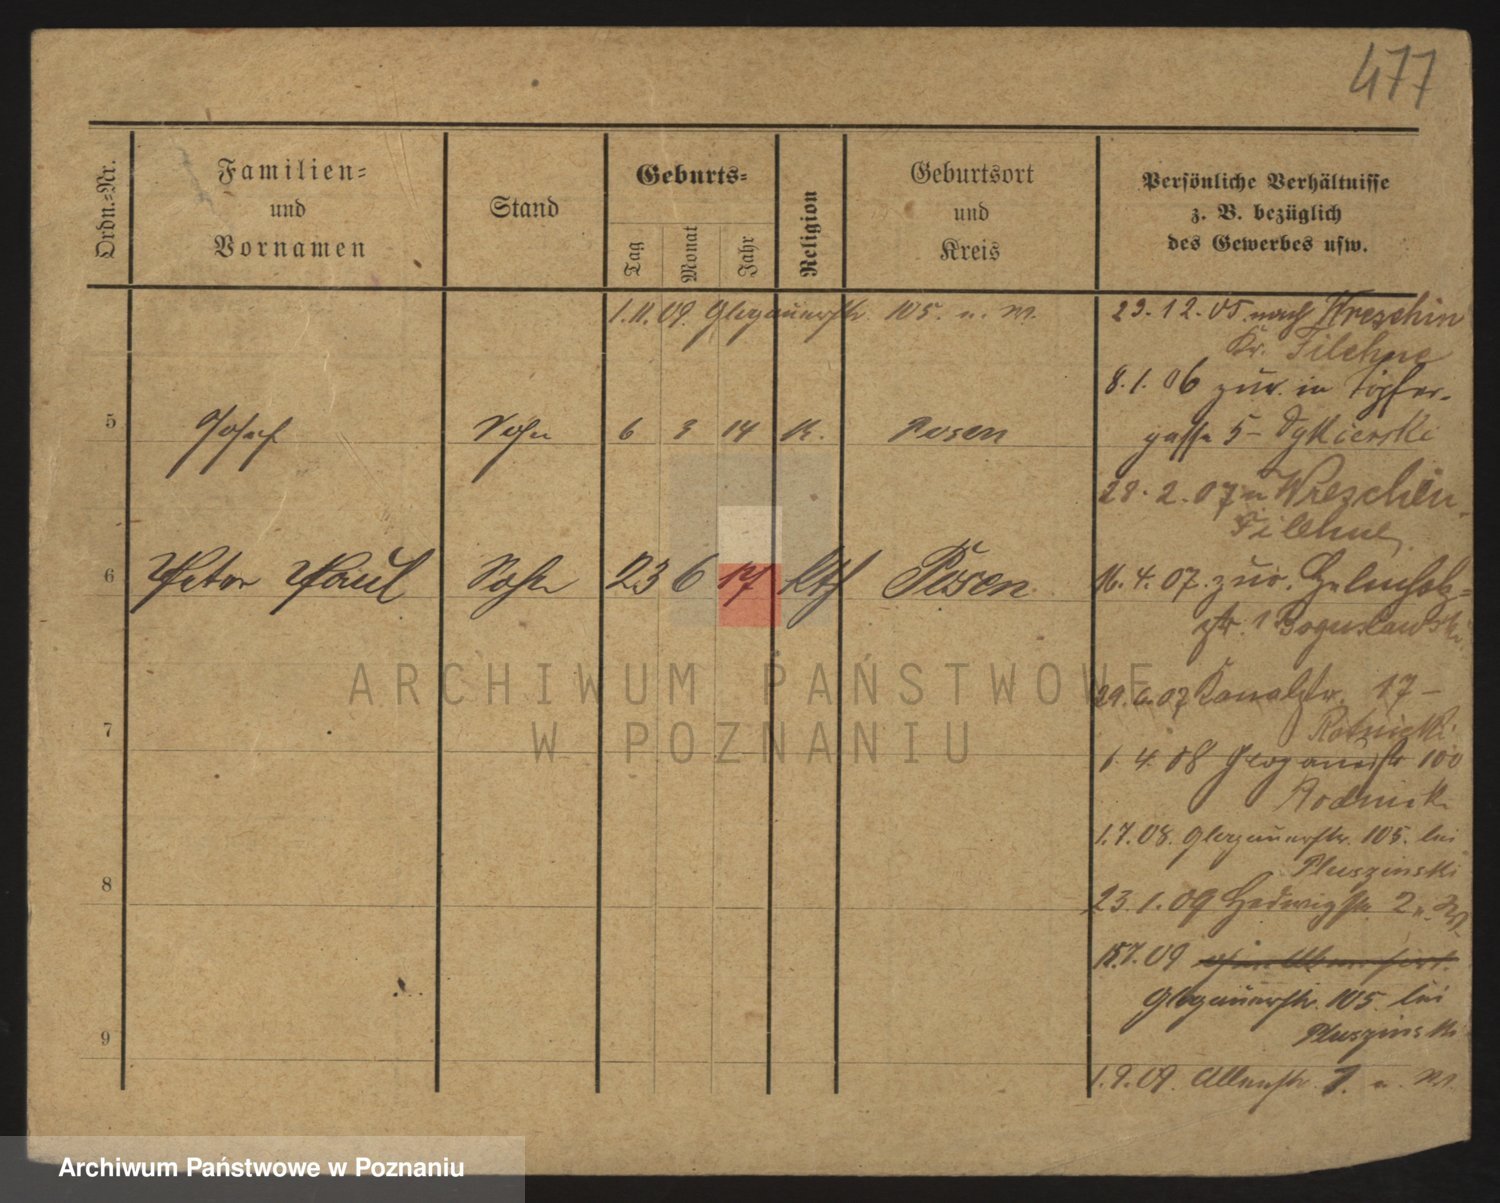 477
Ordn.-Nr.
Familien-
und
Vornamen
Stand
Geburts-
Tag
Monat
Jahr
Religion
Geburtsort
und
Kreis
Persönliche Verhältnisse
z. B. bezüglich
des Gewerbes usw.
1.11.09. Glogauerstr. 105. u. W.
23.12.05. nach Wreschin
Kr. Filehne
8.1.06 zur. in Töpfer-
gasse 5 -
5 Josef Sohn 6 3 14 K. Posen
28.2.07 n Wreschin
Filehne
6 Peter Paul Sohn 23 6 17 kth Posen
16.4.07. zur.
str. 1 Boguslawski
29.6.07 Kanalstr. 17 -
Rotnicki
7
1.4.08 Glogauerstr 100
1.7.08. Glogauerstr. 105. bei
Pluszinski
8
23.1.09 Hedwigstr. 2
15.7.09
Glogauerstr. 105 bei
Pluszinski
9
1.9.09. 7. u. W.
ARCHIWUM PAŃSTWOWE
W POZNANIU
Archiwum Państwowe w Poznaniu